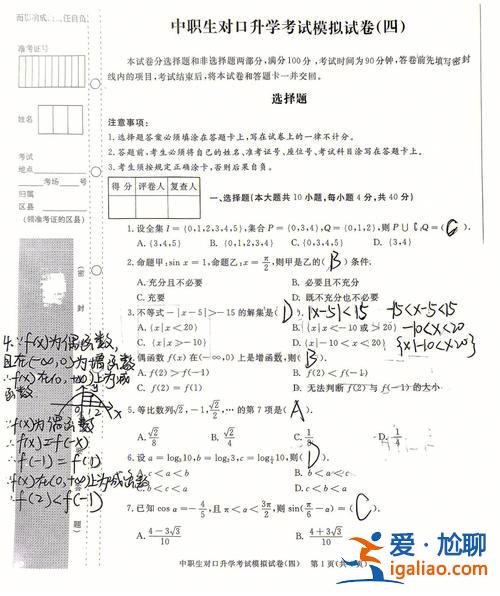 中职生对口升学考试模拟试卷(四)
本试卷分选择题和非选择题两部分,满分100分,考试时间为90分钟,答卷前先填写密封
线内的项目,考试结束后,将本试卷和答题卡一并交回。
选择题
注意事项:
1.选择题答案必须填涂在答题卡上,写在试卷上的一律不计分。
2.答题前,考生必须将自己的姓名、准考证号、座位号、考试科目涂写在答题卡上。
3.考生须按规定正确涂卡,否则后果自负。
得 分 评卷人 复查人
一、选择题(本大题共 10 小题,每小题 4 分,共 40 分)
1.设全集 I={0,1,2,3,4,5},集合 P={0,3,4},Q={0,1,2},则 P∪∁ᵢQ=( C ).
A.{3,4,5} B.{0,1,2,3,4} C.{0,3,4,5} D.{3,4}
2.命题甲:sin x=1,命题乙:x=π/2,则甲是乙的( B )条件.
A.充分且不必要 B.必要且不充分
C.充要 D.既不充分也不必要
3.不等式-|x-5|>-15的解集是( D ). |x-5|<15 -15<x-5<15
A.{x|x<20} B.{x|x<-10 或 >20} -10<x<20
C.{x|x>-10} D.{x|-10<x<20} {x|-10<x<20}
偶函数 f(x)在(-∞,0)上是增函数,则( B ).
A.f(2)>f(-1) B.f(2)<f(-1)
C.f(2)=f(1) D.无法判断 f(2)与 f(-1)的大小
5.等比数列√2,-1,√2/2,…的第7项是( A ).
A.√2/8 B.√2/4 C.1/8 D.1/4
6.设 a=log₃10,b=log₂3,c=log 10,则( D ).
A.c<a<b B.b<a<c
b<c<a D.c<b<a
7.已知 cos α=-4/5,且 π<α<3π/2,则 sin(π/6-α)=( C ).
A.(4-3√3)/10 B.(4+3√3)/10
中职生对口升学考试模拟试卷(四) 第 1 页(共 页)
准考证号
姓名
考试
地点 考场 号
归属
区县
(领准考证的区县)
密
封
题
4.∵f(x)为偶函数,
且在(-∞,0)为增函数
∴f(x)在(0,+∞)上为减
函数
0 1 2 x
∵f(x)为偶函数
∴f(x)=f(-x)
∴f(-1)=f(1)
∵f(x)在(0,+∞)上为减函数
∴f(2)<f(-1)
爱·尬聊
igaliao.com